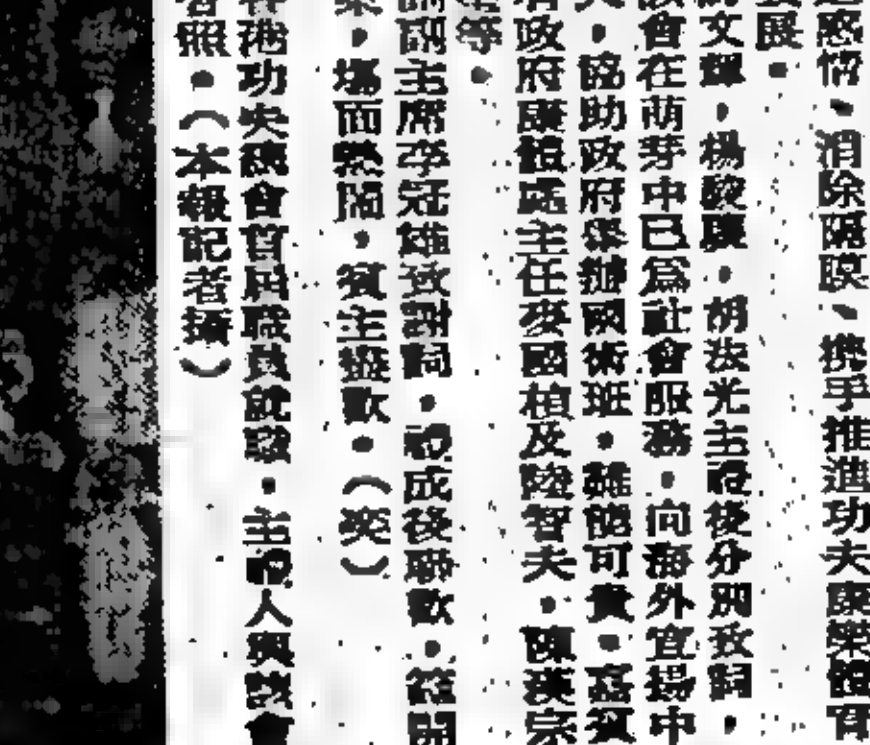 惑情、消除隔膜、携手推進功夫康樂體育
展。
文輝，楊
，胡法光主禮後分別致詞，
會在萌芽中已為社會服務，向海外宣揚中
，協助政府舉辦國術班，難能可貴，嘉賓
政府康體處主任麥國楨及陸智夫，陳漢宗
等。
副主席李冠雄致謝詞，禮成後聯歡，筵開
，場面熱鬧，賓主盡歡。（奕）
港功夫總會首屆職員就職，主禮人與該會
照。（本報記者攝）